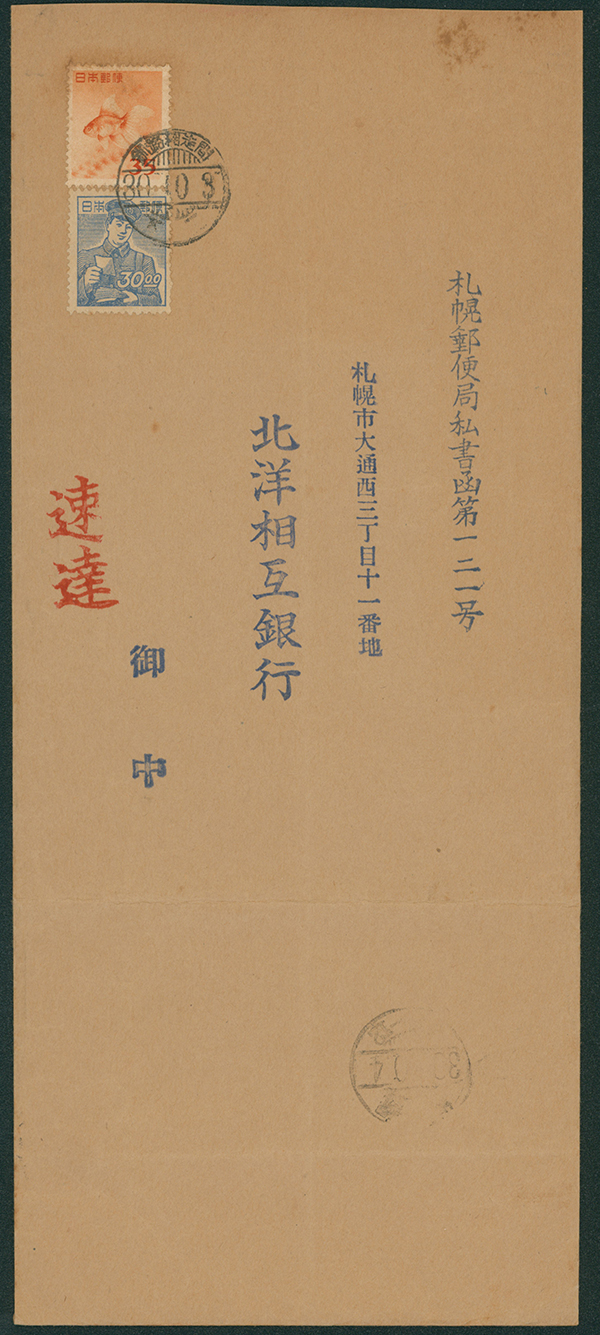 札幌郵便局私書函第一二一号
札幌市大通西三丁目十一番地
北洋相互銀行
御中
速達
日本郵便
35
30 10 3
日本郵便
30.00